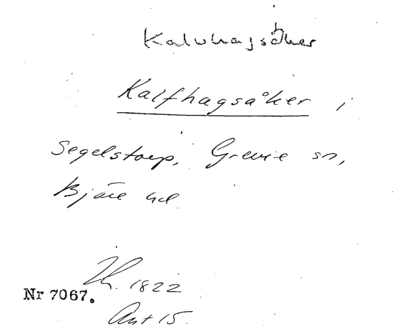 Kalvhagsåker
Kalfhagsåker i
Segelstorp, Grevie sn,
Bjäre hd
1822
Nr 7067.
Akt 15.